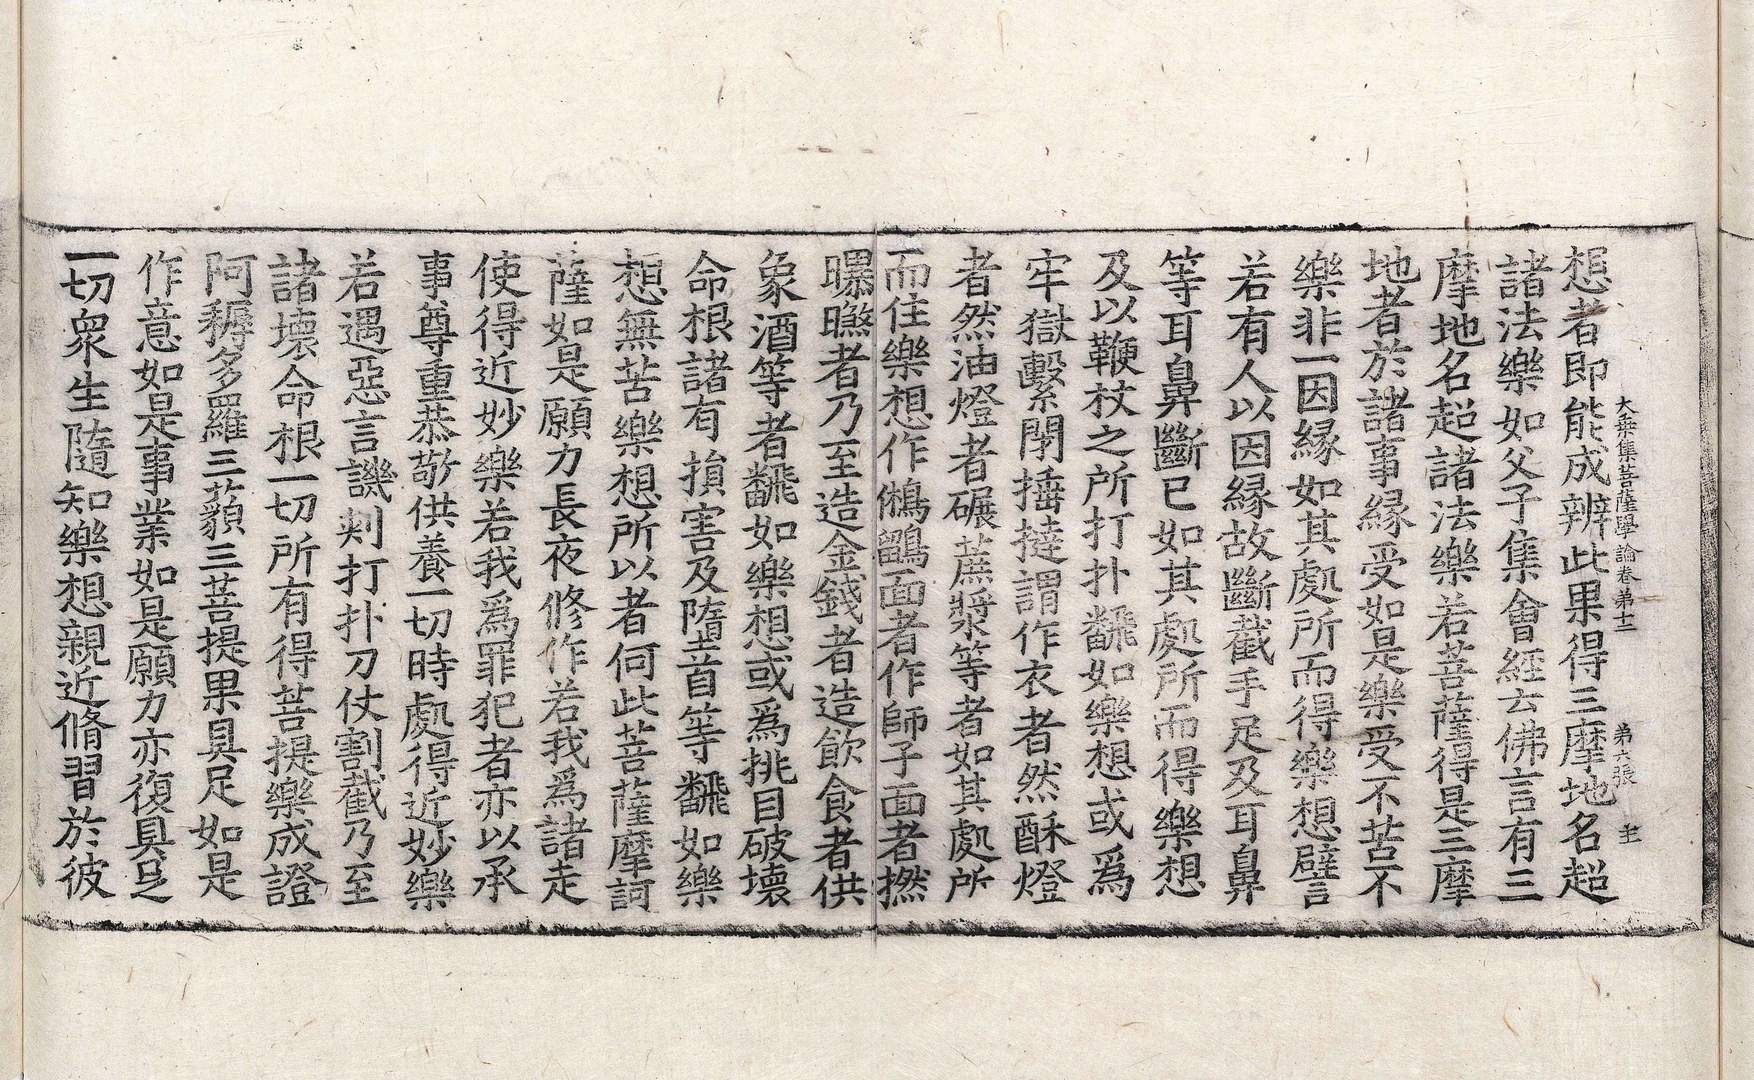 大乗集菩薩學論卷苐十二　苐六張　至
想者即能成辨此果得三摩地名超
諸法樂如父子集會經云佛言有三
摩地名超諸法樂若菩薩得是三摩
地者於諸事緣受如是樂受不苦不
樂非一因緣如其處所而得樂想譬
若有人以因緣故斷截手足及耳鼻
等耳鼻斷已如其處所而得樂想
及以鞭杖之所打扑飜如樂想或爲
牢獄繫閉捶撻謂作衣者然酥燈
者然油燈者碾蔗漿等者如其處所
而住樂想作鵂鶹面者作師子面者撚
曝㬠者乃至造金錢者造飲食者供
象酒等者飜如樂想或爲挑目破壞
命根諸有損害及墮首等飜如樂
想無苦樂想所以者何此菩薩摩訶
薩如是願力長夜修作若我爲諸走
使得近妙樂若我爲罪犯者亦以承
事尊重恭敬供養一切時處得近妙樂
若遇惡言譏剌打扑刀仗割截乃至
諸壞命根一切所有得菩提樂成證
阿耨多羅三藐三菩提果具足如是
作意如是事業如是願力亦復具足
一切衆生隨知樂想親近脩習於彼